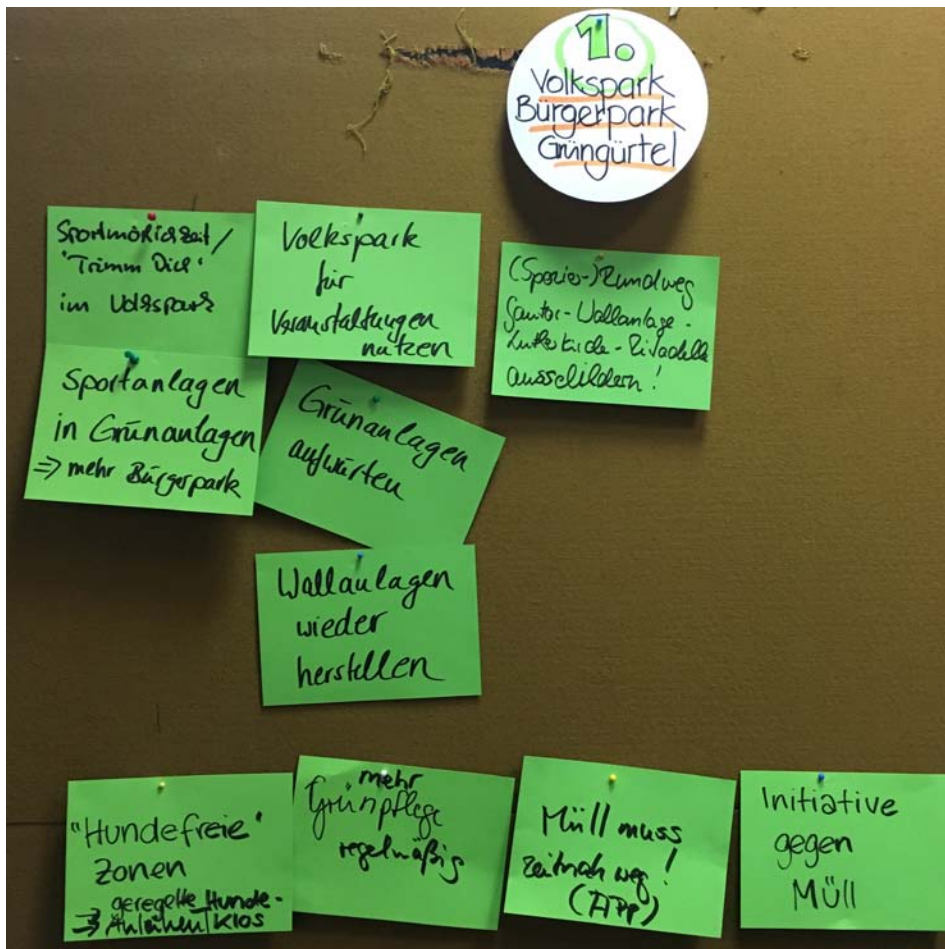 1.
Volkspark
Bürgerpark
Grüngürtel
Sportmöglichkeit/
"Trimm Dich"
im Volkspark
Volkspark
für
Veranstaltungen
nutzen
(Spazier-)Rundweg
Wallanlage -
Lutherkirche - Zitadelle
ausschildern!
Sportanlagen
in Grünanlagen
=> mehr Bürgerpark
Grünanlagen
aufwärten
Wallanlagen
wieder
herstellen
"Hundefreie"
Zonen
=> geregelte Hunde-
/Klos
mehr
Grünpflege
regelmäßig
Müll muss
zeitnah weg!
(APP)
Initiative
gegen
Müll